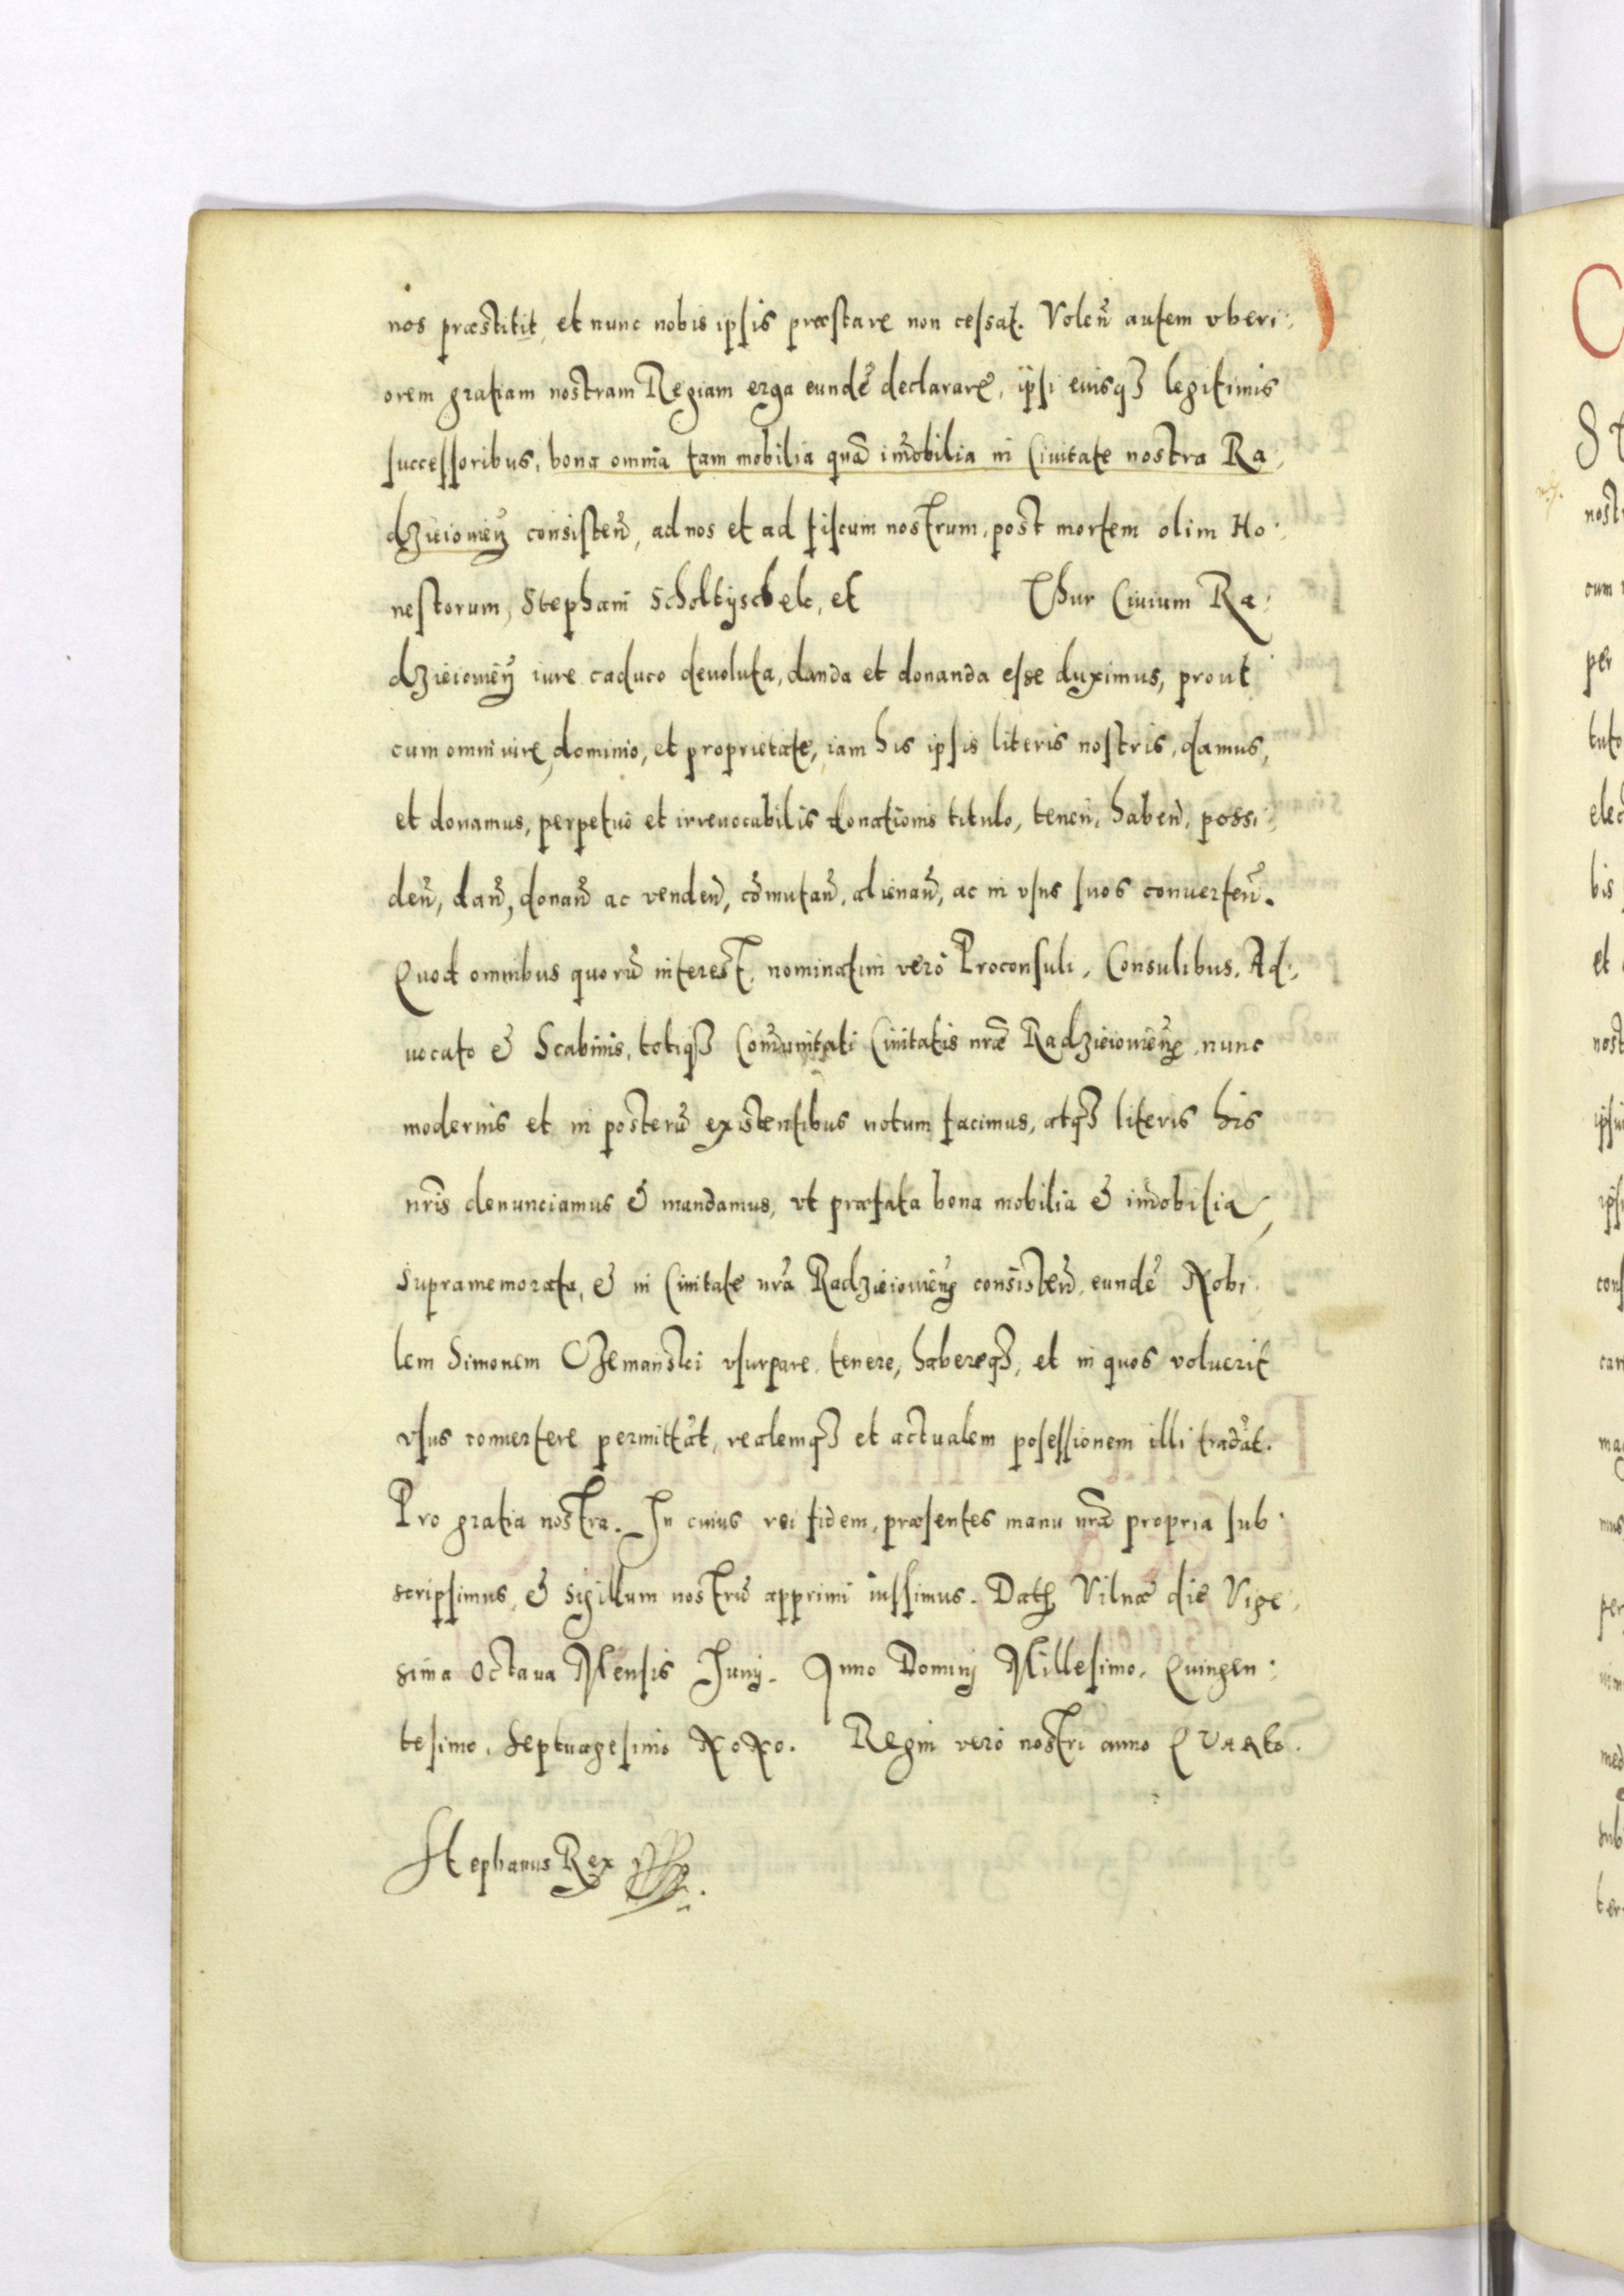 nos præstitit, et nunc nobis ipsis præstare non cessat. Volen̄ autem vberi:
orem gratiam nostram Regiam erga eundē declarare, ipsi eiusqȝ legitimis
successoribus, bona omnia tam mobilia quā im̄obilia in Ciuitate nostra Ra:
dzieiowieņ consisten̄, ad nos et ad fiscum nostrum, post mortem olim Ho:
nestorum, Stephani Scholtyschek, et Thur Ciuium Ra:
dzieiowieņ iure caduco deuoluta, danda et donanda esse duximus, prout
cum omni iure, dominio, et proprietate, iam his ipsis literis nostris, damus,
et donamus, perpetuo et irreuocabilis donationis titulo, tenen̄, haben̄, possi:
den̄, dan̄, donan̄ ac venden̄, cōmutan̄, alienan̄, ac in vsus suos conuerten̄.
Quod omnibus quorū interest, nominatim verò Proconsuli, Consulibus, Ad:
uocato & Scabinis, totiqȝ Com̄unitati Ciuitatis nr̄æ Radzieiowieņ nunc
modernis et in posterū existentibus notum facimus, atqȝ literis his
nr̄is denunciamus & mandamus, vt præfata bona mobilia & im̄obilia,
supramemorata, & in Ciuitate nr̄a Radzieiowieņ consisten̄, eundē Nobi:
lem Simonem Czemanski vsurpare, tenere, habereqȝ, et in quos voluerit
vsus conuertere permittāt, realemqȝ et actualem posessionem illi tradāt.
Pro gratia nostra. In cuius rei fidem, præsentes manu nr̄a propria sub:
scripsimus, & sigillum nostrū apprimi iussimus. Datȝ Vilnæ die Vige:
sima octaua Mensis Junij. Anno Dominj Millesimo, Quingen:
tesimo, Septuagesimo NoNo. Regni verò nostri anno QVARto.
Stephanus Rex